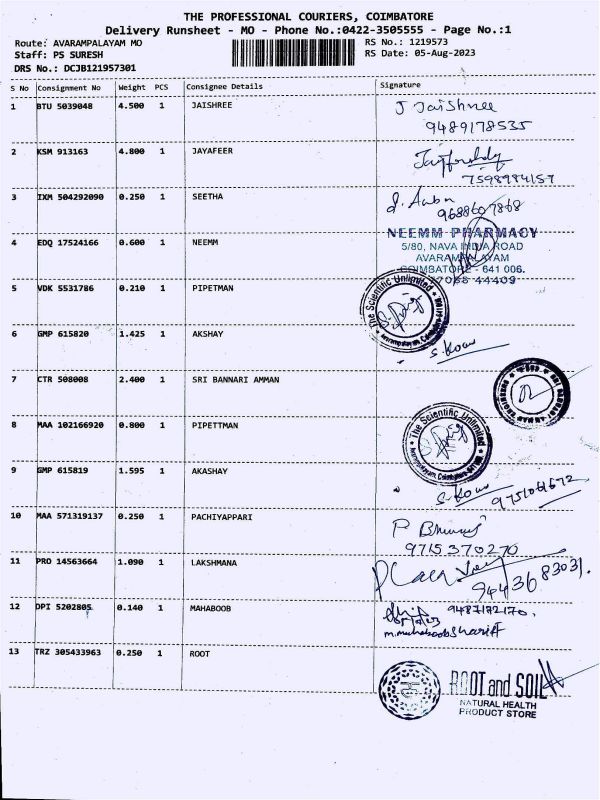 THE PROFESSIONAL COURIERS, COIMBATORE
Delivery Runsheet - MO - Phone No.:0422-3505555 - Page No.:1
Route: AVARAMPALAYAM MO
RS No.: 1219573
Staff: PS SURESH
RS Date: 05-Aug-2023
DRS No.: DCJB121957301
S No Consignment No Weight PCS Consignee Details Signature
1 BTU 5039048 4.500 1 JAISHREE J Jaishree
9489178535
2 KSM 913163 4.800 1 JAYAFEER
7598984157
3 IXM 504292090 0.250 1 SEETHA
9688607868
4 EDQ 17524166 0.600 1 NEEMM NEEMM PHARMACY
5/80, NAVA INDIA ROAD
AVARAMPALAYAM
COIMBATORE - 641 006.
44409
5 VDK 5531786 0.210 1 PIPETMAN The Scientific Unlimited
6 GMP 615820 1.425 1 AKSHAY
7 CTR 508008 2.400 1 SRI BANNARI AMMAN
8 MAA 102166920 0.800 1 PIPETTMAN The Scientific Unlimited
9 GMP 615819 1.595 1 AKASHAY
10 MAA 571319137 0.250 1 PACHIYAPPARI
9715370270
11 PRO 14563664 1.090 1 LAKSHMANA
9443683031.
12 DPI 5202805 0.140 1 MAHABOOB 9487182170.
m.mahaboobshariff
13 TRZ 305433963 0.250 1 ROOT ROOT and SOIL
NATURAL HEALTH
PRODUCT STORE